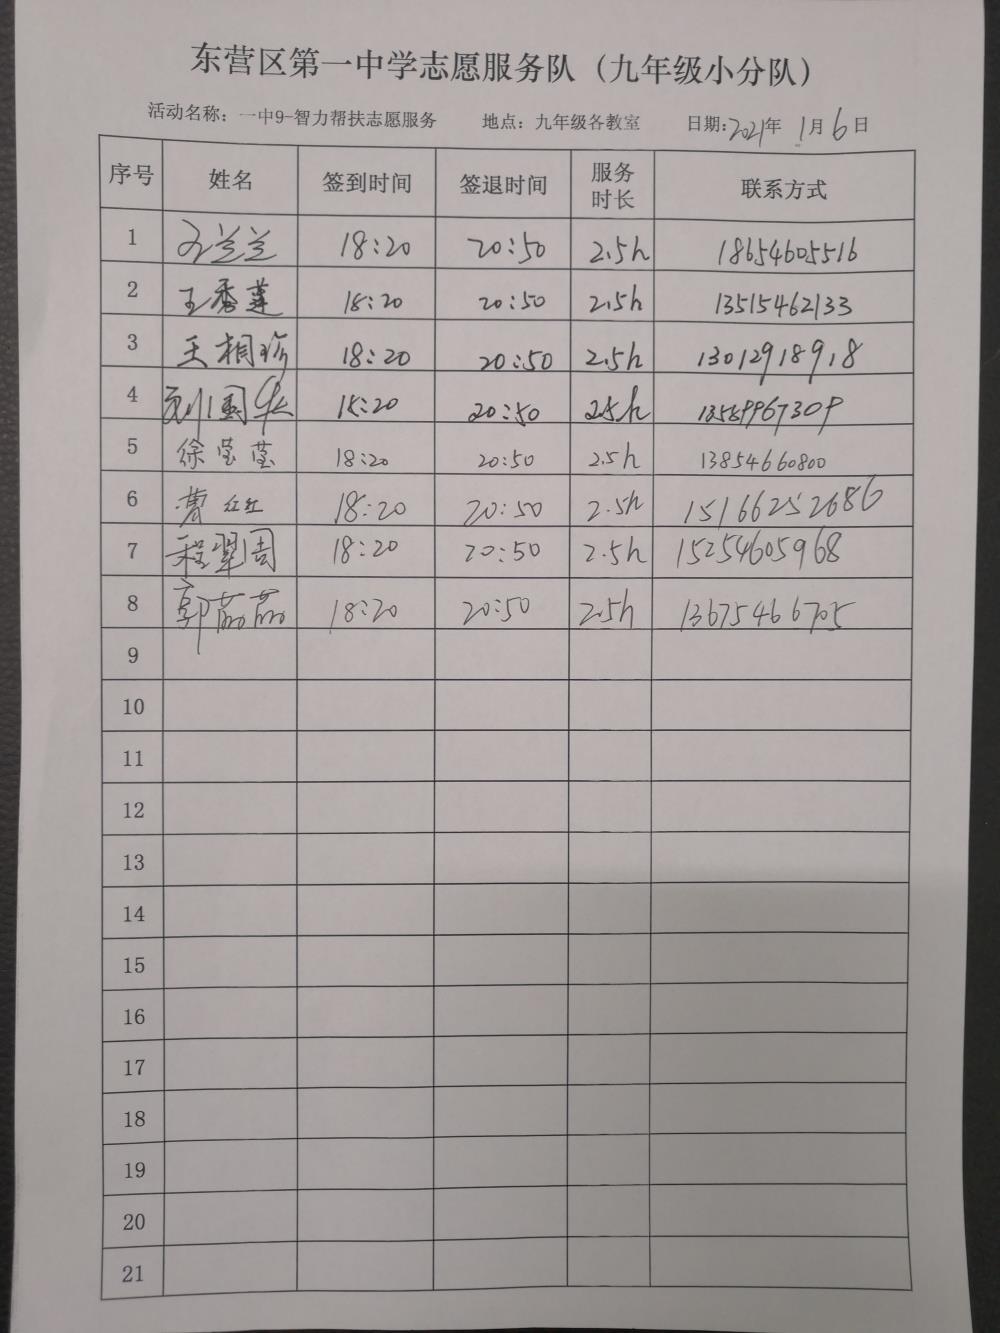 东营区第一中学志愿服务队（九年级小分队）
活动名称：一中9-智力帮扶志愿服务 地点：九年级各教室 日期：2021年 1月 6日
序号 姓名 签到时间 签退时间 服务时长 联系方式
1 兰兰 18:20 20:50 2.5h 18654605516
2 王秀莲 18:20 20:50 2.5h 13515462133
3 王相珍 18:20 20:50 2.5h 13012918918
4 刘国华 18:20 20:50 2.5h
5 徐莹莹 18:20 20:50 2.5h 13854660800
6 曹红红 18:20 20:50 2.5h 15166252686
7 程翠周 18:20 20:50 2.5h 15254605968
8 郭茹茹 18:20 20:50 2.5h 13675466705
9
10
11
12
13
14
15
16
17
18
19
20
21